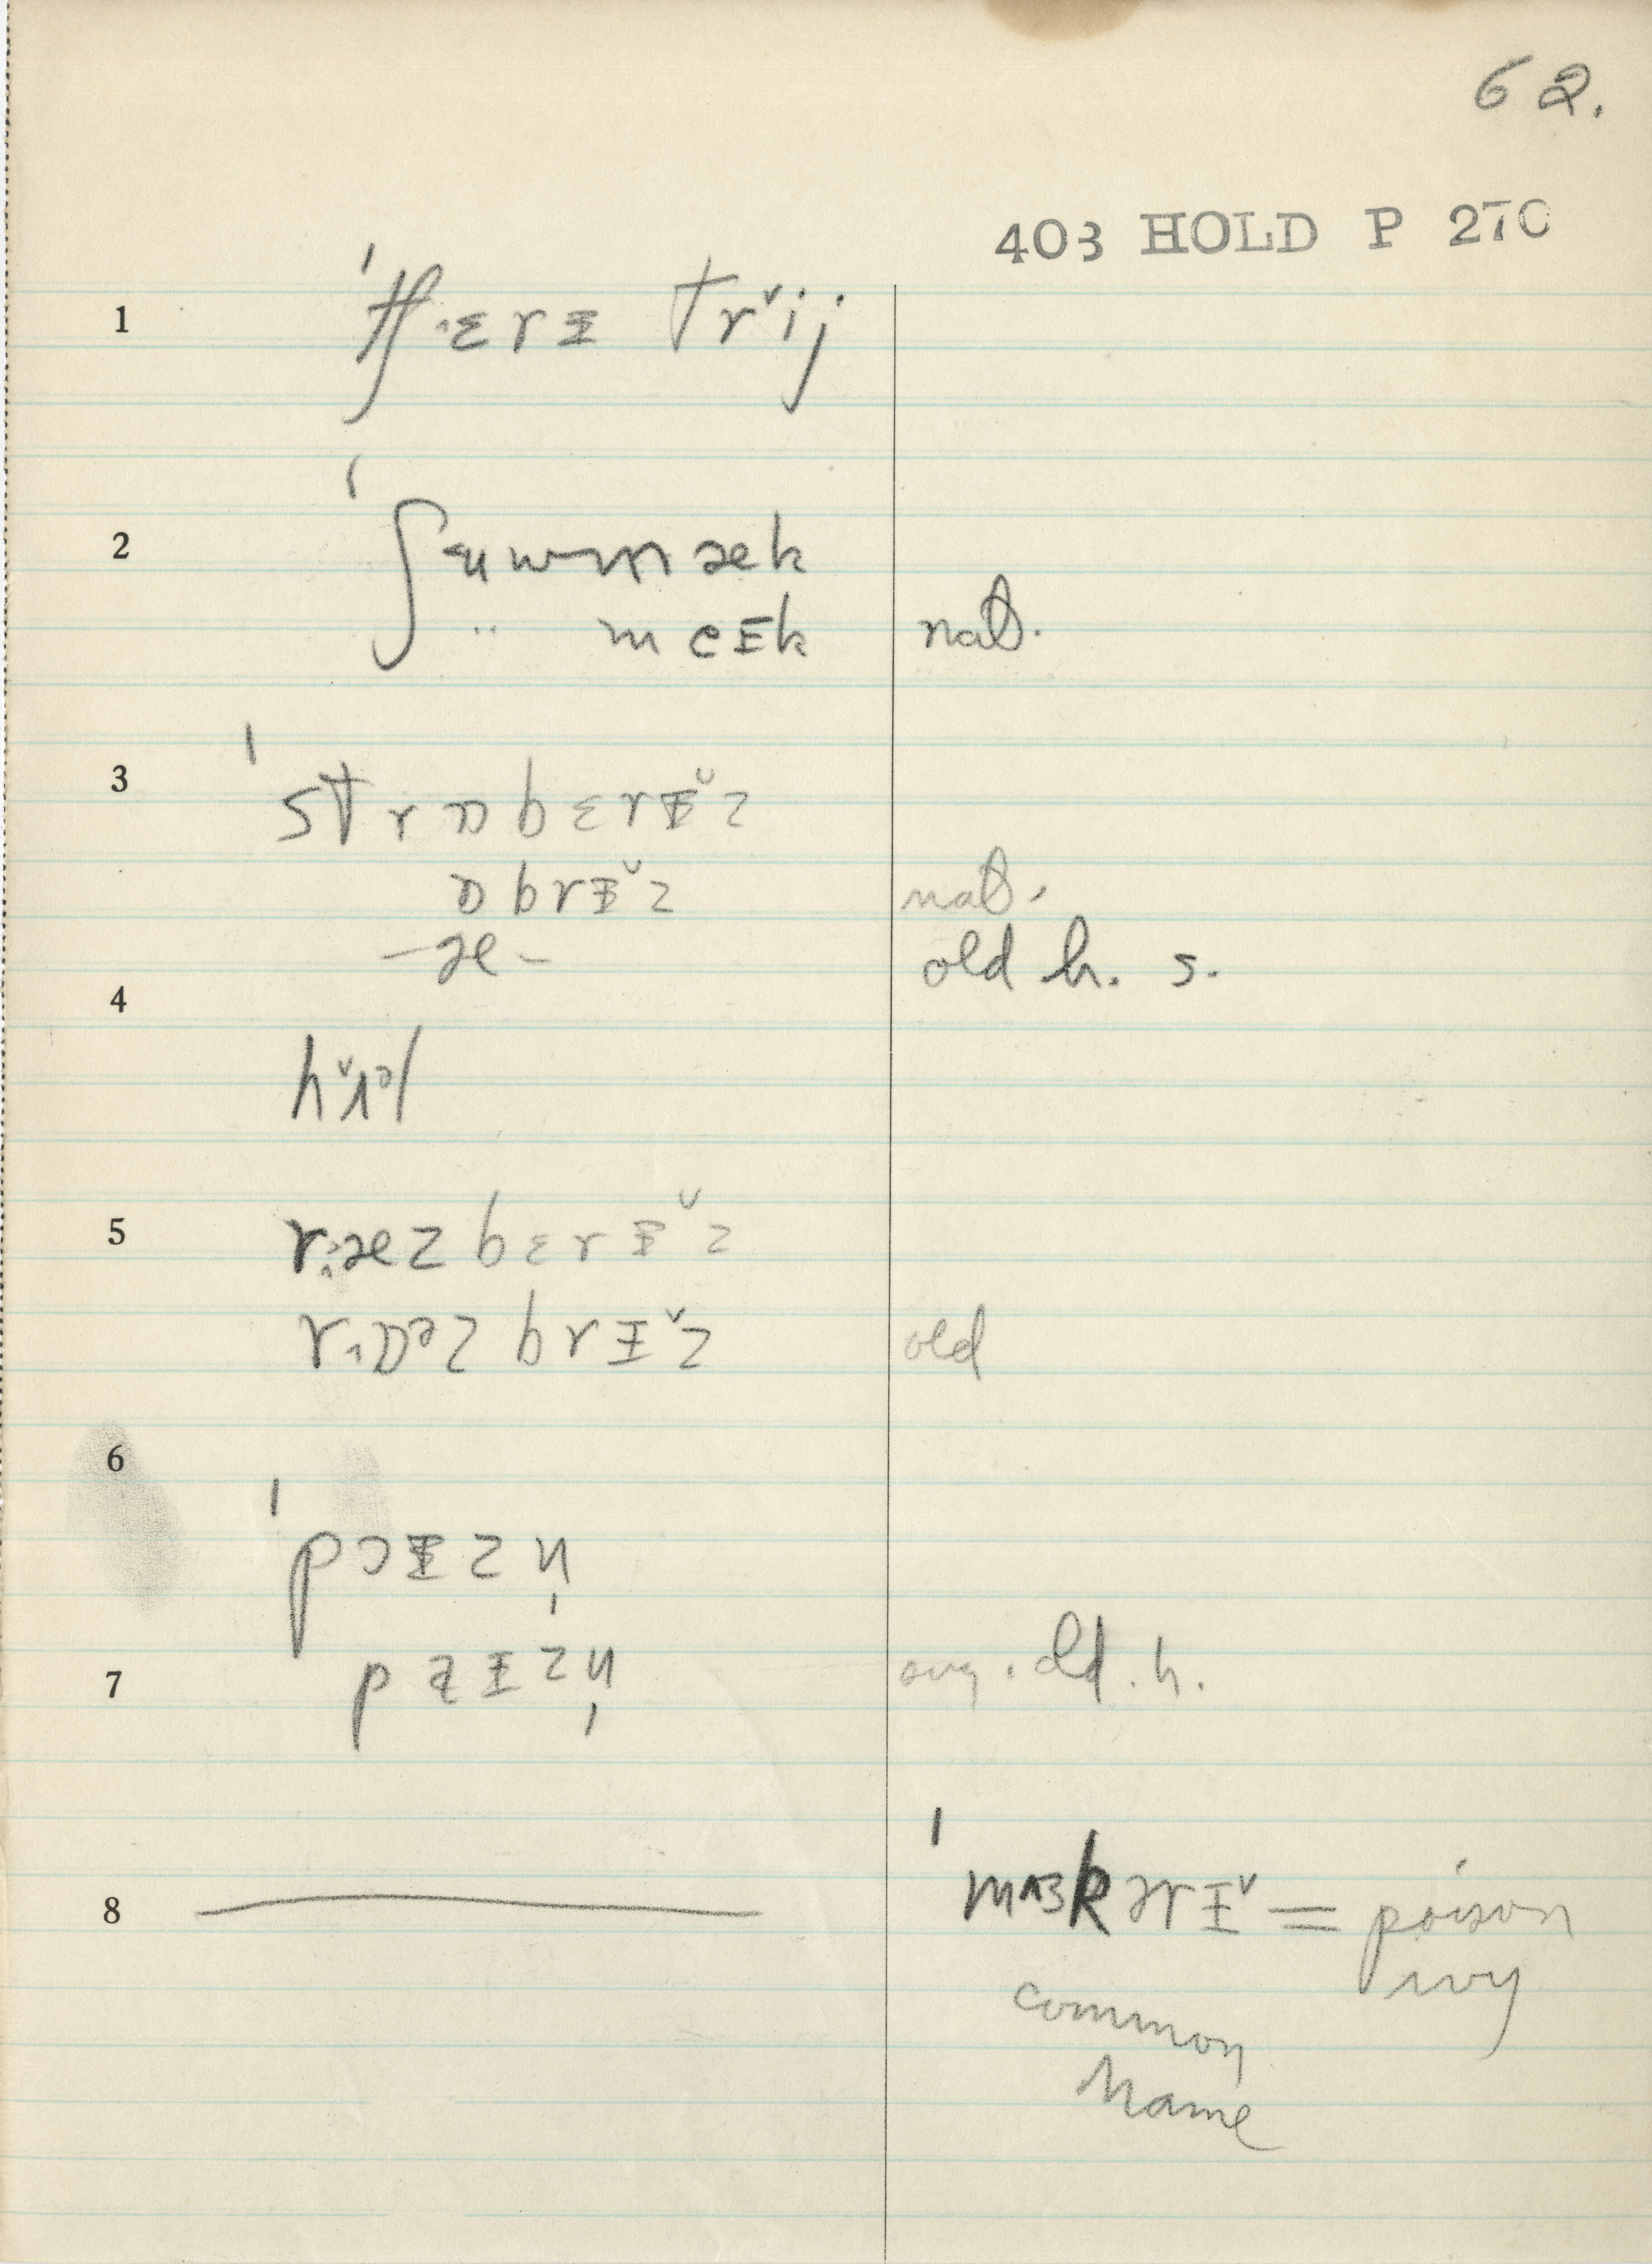 62.
403 HOLD P 270
1 ˈtʃɛrɪ trˇij
2 ˈʃuwmæk
.. meɪk nat.
3 ˈstrɒbɛrɪ̆z
ɒbrɪ̆z nat.
–æ– old h. s.
4
5 ræzbɛrɪ̆z
rɒəzbrɪˇz old
6
ˈpɔɪzn̩
7 pəɪzn̩ old. h.
8 — = poison
ivy
common
Name